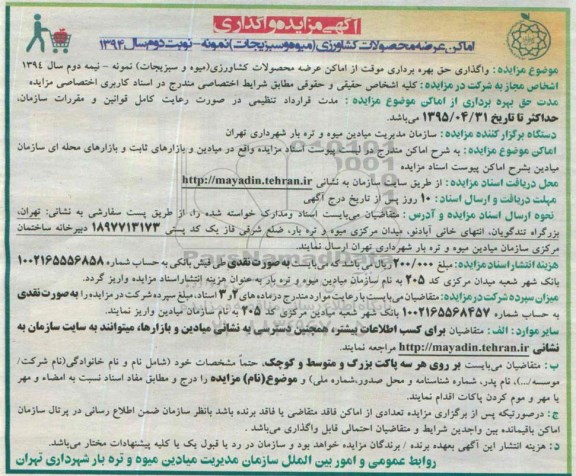 آگهی مزایده واگذاری
اماکن عرضه محصولات کشاورزی (میوه و سبزیجات) نمونه - نوبت دوم سال ۱۳۹۴
موضوع مزایده : واگذاری حق بهره برداری موقت از اماکن عرضه محصولات کشاورزی (میوه و سبزیجات) نمونه - نیمه دوم سال ۱۳۹۴
اشخاص مجاز به شرکت در مزایده : کلیه اشخاص حقیقی و حقوقی مطابق شرایط اختصاصی مندرج در اسناد کاربری اختصاصی مزایده
مدت حق بهره برداری از اماکن موضوع مزایده : مدت قرارداد تنظیمی در صورت رعایت کامل قوانین و مقررات سازمان،
حداکثر تا تاریخ ۱۳۹۵/۰۴/۳۱ می‌باشد.
دستگاه برگزار کننده مزایده : سازمان مدیریت میادین میوه و تره بار شهرداری تهران
اماکن موضوع مزایده : به شرح اماکن مندرج در لیست پیوست اسناد مزایده واقع در میادین و بازارهای ثابت و بازارهای محله ای سازمان
میادین بشرح اماکن پیوست اسناد مزایده
محل دریافت اسناد مزایده : از طریق سایت سازمان به نشانی http://mayadin.tehran.ir
مهلت دریافت و ارسال اسناد : ۱۰ روز پس از تاریخ درج آگهی
نحوه ارسال اسناد مزایده و آدرس : متقاضیان می‌بایست اسناد ومدارک خواسته شده را، از طریق پست سفارشی به نشانی: تهران،
بزرگراه تندگویان، انتهای خانی آبادنو، میدان مرکزی میوه و تره بار، ضلع شرقی فاز یک کد پستی ۱۸۹۷۷۱۳۱۷۳ دبیرخانه ساختمان
مرکزی سازمان میادین میوه و تره بار شهرداری تهران ارسال نمایند.
هزینه انتشار اسناد مزایده : مبلغ ۲۰۰/۰۰۰ ریال می‌باشد که می‌بایست به صورت نقدی طی فیش بانکی به حساب شماره ۱۰۰۲۱۶۵۵۵۶۸۵۸
بانک شهر شعبه میدان مرکزی کد ۲۰۵ به نام سازمان میادین میوه و تره بار به عنوان هزینه انتشار اسناد مزایده واریز گردد.
میزان سپرده شرکت در مزایده : متقاضیان می‌بایست با رعایت موارد مندرج در ماده‌های ۲ و ۳ اسناد، مبلغ سپرده شرکت در مزایده را به صورت نقدی
به حساب شماره ۱۰۰۲۱۶۵۵۶۸۴۵۷ بانک شهر شعبه میدان مرکزی کد ۲۰۵ به نام سازمان میادین واریز نمایند.
سایر موارد : الف : متقاضیان برای کسب اطلاعات بیشتر، همچنین دسترسی به نشانی میادین و بازارها، میتوانند به سایت سازمان به
نشانی http://mayadin.tehran.ir مراجعه نمایند.
ب : متقاضیان می‌بایست بر روی هر سه پاکت بزرگ و متوسط و کوچک، حتماً مشخصات خود (شامل نام و نام خانوادگی(نام شرکت/
موسسه/...)، نام پدر، شماره شناسنامه و محل صدور، شماره ملی) و موضوع(نام) مزایده را درج و مطابق مفاد اسناد نسبت به امضاء و مهر
یا مهر و موم کردن پاکات اقدام نمایند.
ج : درصورتیکه پس از برگزاری مزایده تعدادی از اماکن فاقد متقاضی یا فاقد برنده باشد بانظر سازمان ضمن اطلاع رسانی در پرتال سازمان
اماکن باقیمانده بین واجدین شرایط و متقاضیان احتمالی قابل واگذاری می‌باشد.
د : هزینه انتشار این آگهی بعهده برنده / برندگان مزایده خواهد بود و سازمان در رد یا قبول یک یا کلیه پیشنهادات مختار می‌باشد.
روابط عمومی و امور بین الملل سازمان مدیریت میادین میوه و تره بار شهرداری تهران